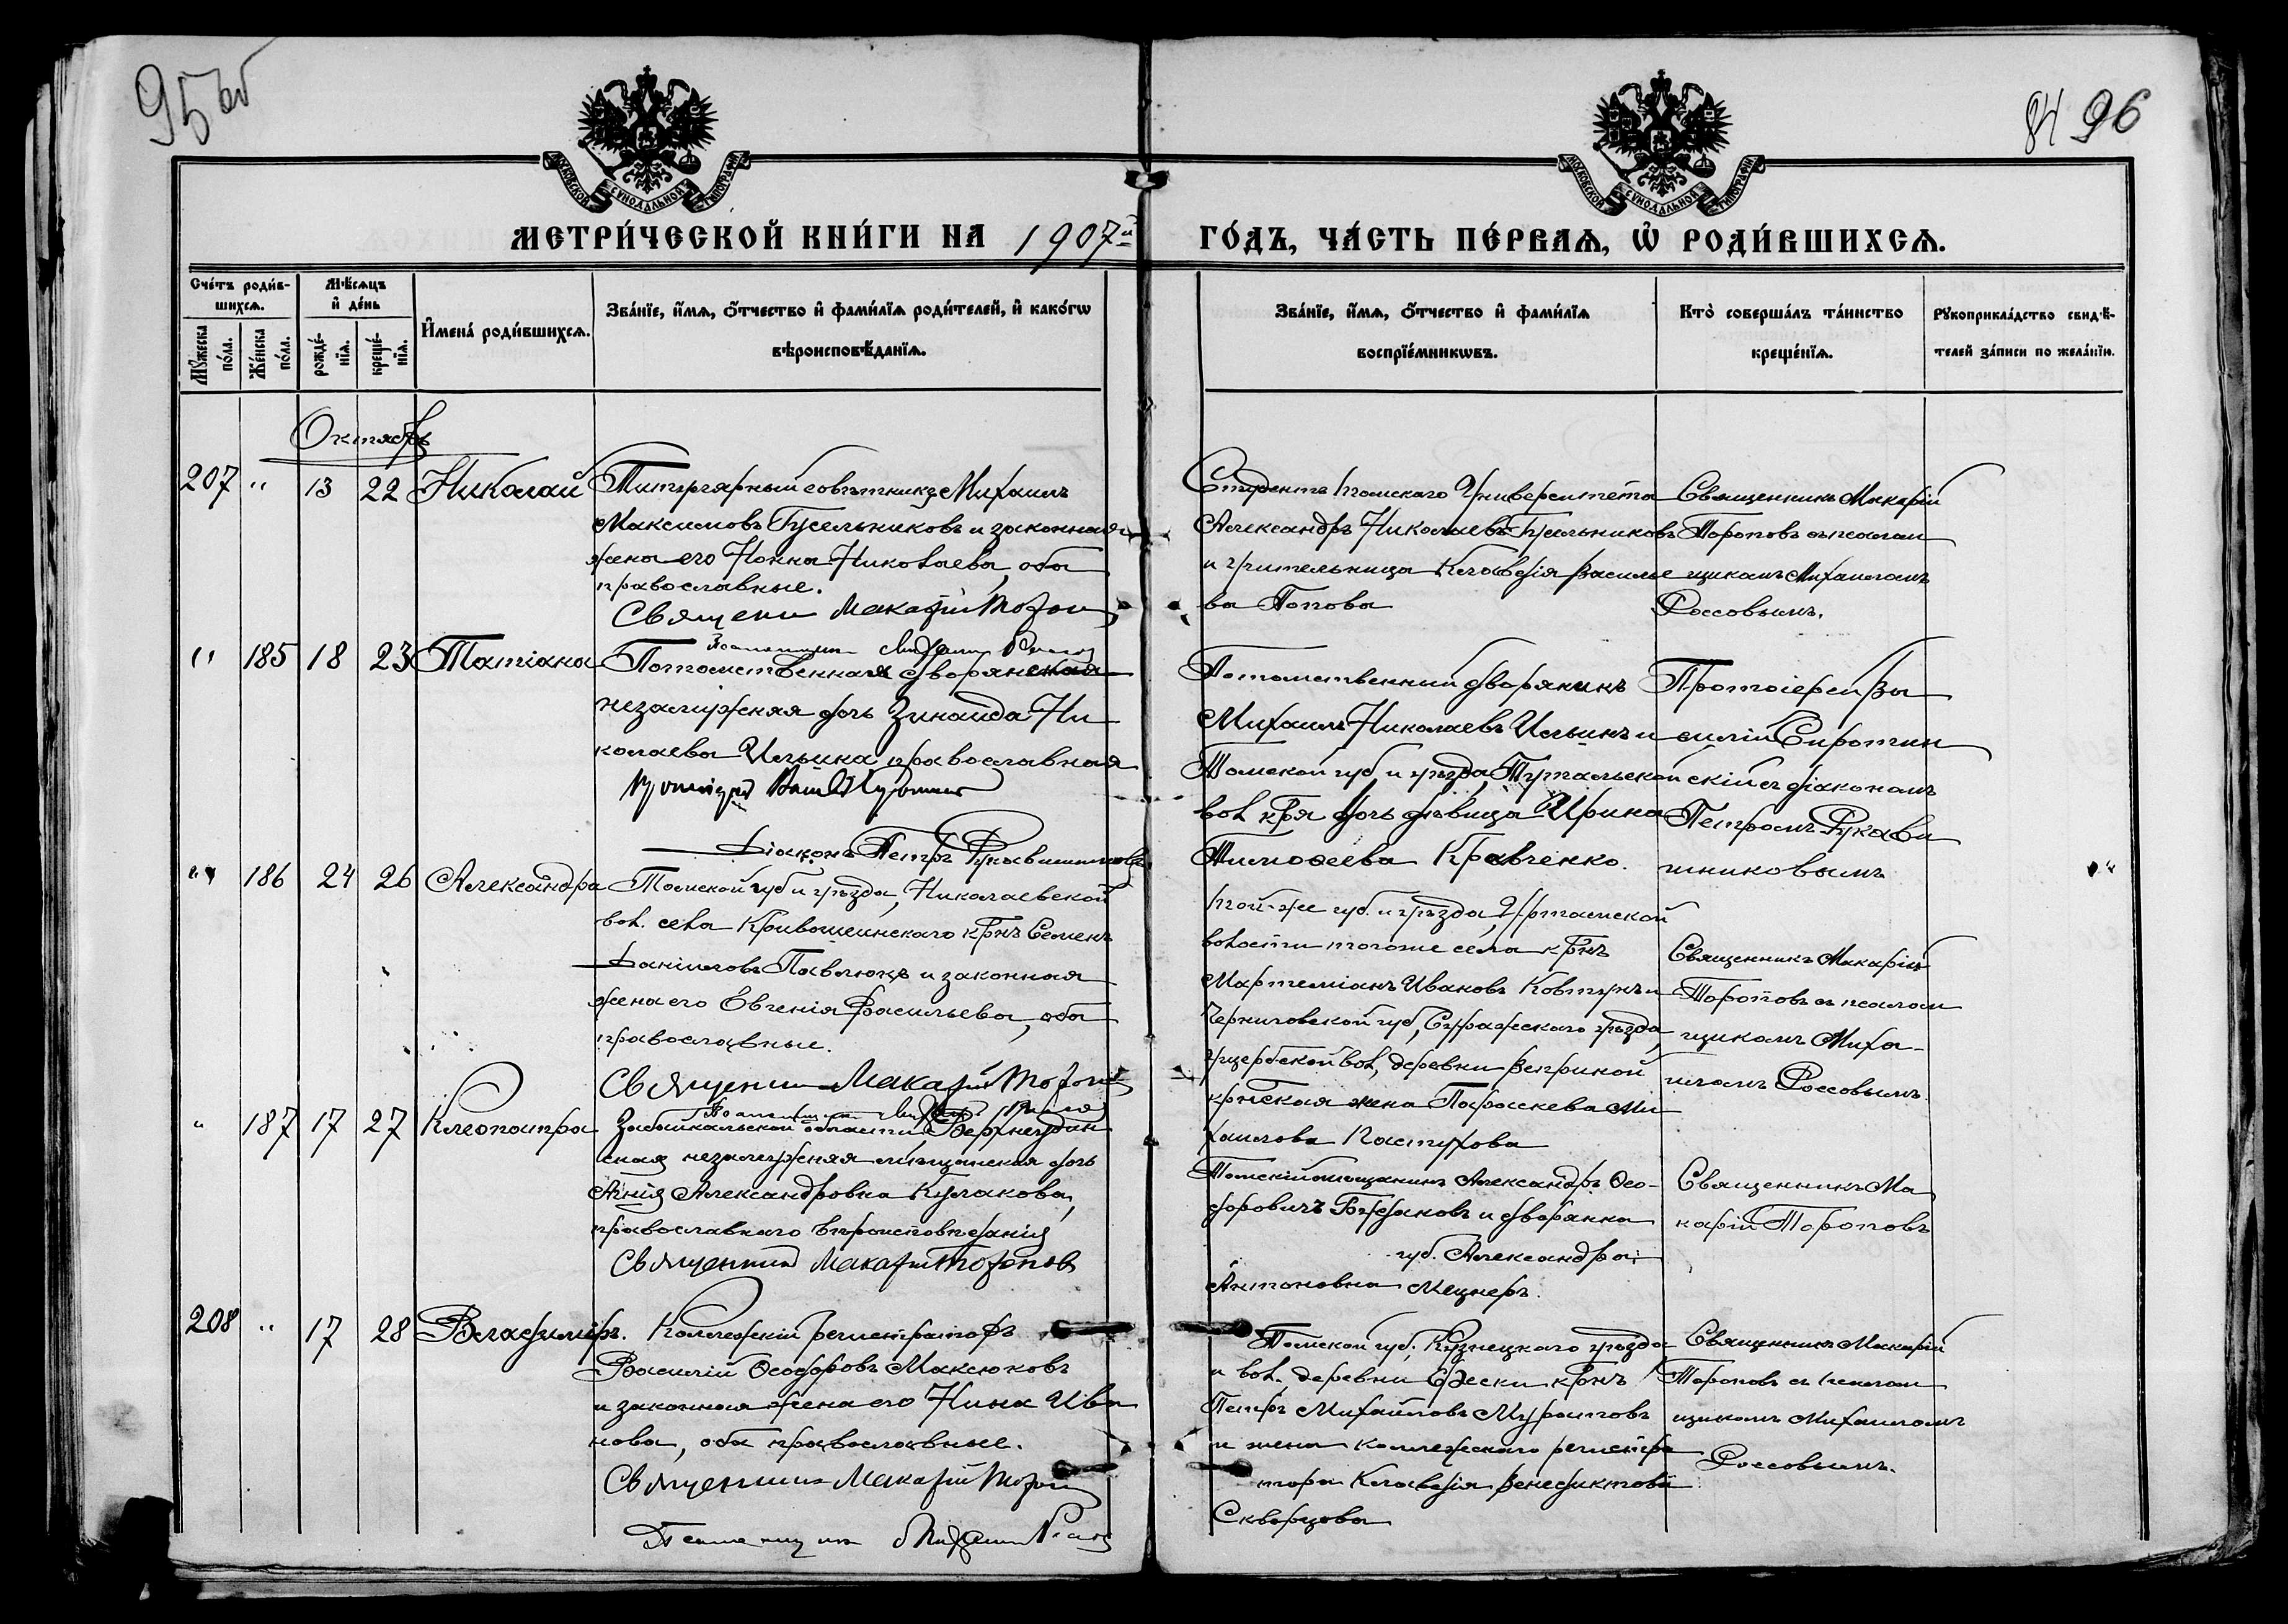 95 об
84 96
МОСКОВСКОЙ СѴНОДАЛЬНОЙ ТИПОГРАФІИ
МОСКОВСКОЙ СѴНОДАЛЬНОЙ ТИПОГРАФІИ
МЕТРИ́ЧЕСКОЙ КНИ́ГИ НА 1907й ГО́ДЪ, ЧА́СТЬ ПЕ́РВАѦ, Ѡ҆ РОДИ́ВШИХСѦ.
Сче́тъ роди́в-
шихсѧ.
Мѹ́жеска по́ла.
Же́нска по́ла.
Мѣ́сѧцъ
и҆ де́нь
рожде́-
нїѧ.
креще́-
нїѧ.
И҆мена̀ роди́вшихсѧ.
Зва́нїе, и҆́мѧ, ѻ҆́тчество и҆ фами́лїѧ роди́телей, и҆ како́гѡ
вѣроисповѣ́данїѧ.
Зва́нїе, и҆́мѧ, ѻ҆́тчество и҆ фами́лїѧ
воспрїе́мникѡвъ.
Кто̀ соверша́лъ та́инство
креще́нїѧ.
Рѹкоприкла́дство свидѣ́-
телей за́писи по жела́нїю.
Октябрь
207 " 13 22 Николай
Титулярный совѣтникъ Михаилъ
Максимовъ Гусельниковъ и законная
жена его Нонна Николаева, оба
православные.
Священн Макарій Торопов
Псаломщик Михаил Россов
Студентъ Томскаго Университета
Александръ Николаевъ Гусельниковъ
и учительница Клавдія Василье
ва Попова
Священникъ Макарій
Тороповъ съ псалом
щикомъ Михаиломъ
Россовымъ.
" 185 18 23 Татіана
Потомственная дворянская
незамужняя дочь Зинаида Ни
колаева Ильина, православная
Протоіерей Васил Сиротинск
Діаконъ Петръ Рукавишниковъ
Потомственный дворянинъ
Михаилъ Николаевъ Ильинъ и
Томской губ. и уѣзда, Тутальской
вол. кр-я дочь дѣвица Ирина
Тимоѳеева Кравченко.
Протоіерей Ва
силій Сиротин
скій съ діакономъ
Петромъ Рукави
шниковымъ
" 186 24 26 Александра
Томской губ. и уѣзда, Николаевской
вол. села Кривошеинскаго кр-нъ Семенъ
Даніиловъ Павлюкъ и законная
жена его Евгенія Васильева, оба
православные.
Священник Макарій Торопов
Псаломщик Михаил Россов
той-же губ. и уѣзда, Уртамской
волости тогоже села кр-нъ
Мартеміанъ Ивановъ Ковтунъ и
Черниговской губ., Суражскаго уѣзда,
Ущербской вол., деревни Веприной
кр-нская жена Параскева Ми
хаилова Пастухова
Священникъ Макарій
Тороповъ съ псалом
щикомъ Миха-
иломъ Россовымъ
" 187 17 27 Клеопатра
Забайкальской области, Верхнеудин
ская незамужняя мѣщанская дочь
Агнія Александровна Кулакова,
православнаго вѣроисповѣданія
Священник Макарій Торопов
Томскій мѣщанинъ Александръ Ѳео-
доровичъ и дворянка
губ. Александра
Антоновна Мецнеръ.
Священникъ Ма
карій Тороповъ
208 " 17 28 Владиміръ.
Коллежскій регистраторъ
Василій Ѳеодоровъ Максюковъ
и законная жена его Нина Ива
нова, оба православные.
Священник Макарій Торопов
Псаломщик Михаил Россов
Томской губ., Кузнецкаго уѣзда
и вол., деревни кр-нъ
Петръ Михайловъ Муратовъ
и жена коллежскаго регистра
тора Клавдія Венедиктова
Скворцова
Священникъ Макарій
Тороповъ съ псалом
щикомъ Михаиломъ
Россовымъ.